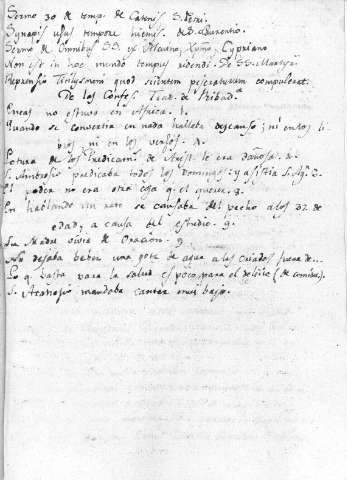 Sermo 30 de temp. de Catenis S. Petri.
Synapis usus tempore hiemis. de S. Laurentio.
Sermo de Omnibus SS. ex Cypriano
Non est in hoc mundo tempus ridendi. de SS. Martyri
quod scientem peccaturum compulerat.
De los Confes. Trad. de Ribad.ª
Eneas no estuvo en Africa. 1.
Quando se convertia en nada hallaba descanso; ni en los li
bros ni en los versos. 4.
Letura de los Predicam. de Arist. le era dañosa. 4.
S. Ambrosio predicaba todos los Domingos. y asistia S. Ag.
El poder no era otra cosa q. el querer. 8.
En hablando un rato se cansaba del pecho a los 32 de
edad, y a causa del estudio. 9.
Su Madre vivia de Oracion. 9
No dejaba beber una gota de agua a las criadas fuera de...
Lo q. basta para la salud es poco para el deleite (de comida).
S. Atanasio mandaba cantar mui bajo.